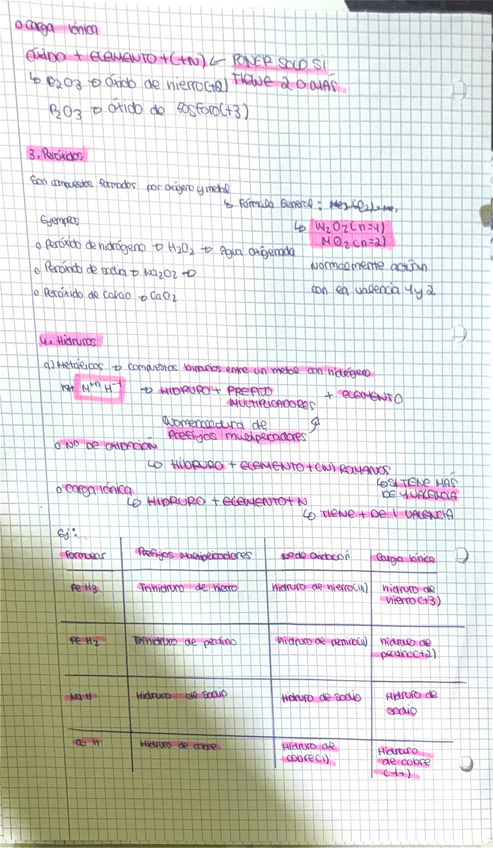 o carga iónica
óxido + elemento + (+N) ← PONER SOLO SI
TIENE 2 O MÁS
↳ Fe2O3 → óxido de hierro(+2)
P2O3 → óxido de fosforo(+3)
3. Peróxidos
Son compuestos formados por oxígeno y metal
↳ Fórmula General:
↳ M2O2 (n=1)
MO2 (n=2)
Ejemplos
o Peróxido de hidrógeno → H2O2 → Agua oxigenada
normalmente actúan
o Peróxido de sodio → Na2O2 →
con la valencia 1 y 2
o Peróxido de Calcio → CaO2
4. Hidruros
a) Metálicos → compuestos binarios entre un metal con hidrógeno
M+n H-1 → HIDRURO + PREFIJO + ELEMENTO
MULTIPLICADORES
Nomenclatura de
Prefijos multiplicadores
o NO DE OXIDACIÓN
↳ HIDRURO + ELEMENTO + (N) ROMANOS
↳ SI TIENE MÁS
DE 1 VALENCIA
o carga iónica
↳ HIDRURO + ELEMENTO + N
↳ TIENE + DE 1 VALENCIA
Ej:
Formular Prefijos Multiplicadores No de Oxidación Carga Iónica
FeH3 Trihidruro de hierro hidruro de hierro(III) hidruro de
hierro(+3)
hidruro de
(+2)
NaH Hidruro de sodio Hidruro de sodio Hidruro de
sodio
Hidruro de cobre Hidruro de
cobre(I) Hidruro
de cobre
(+1)